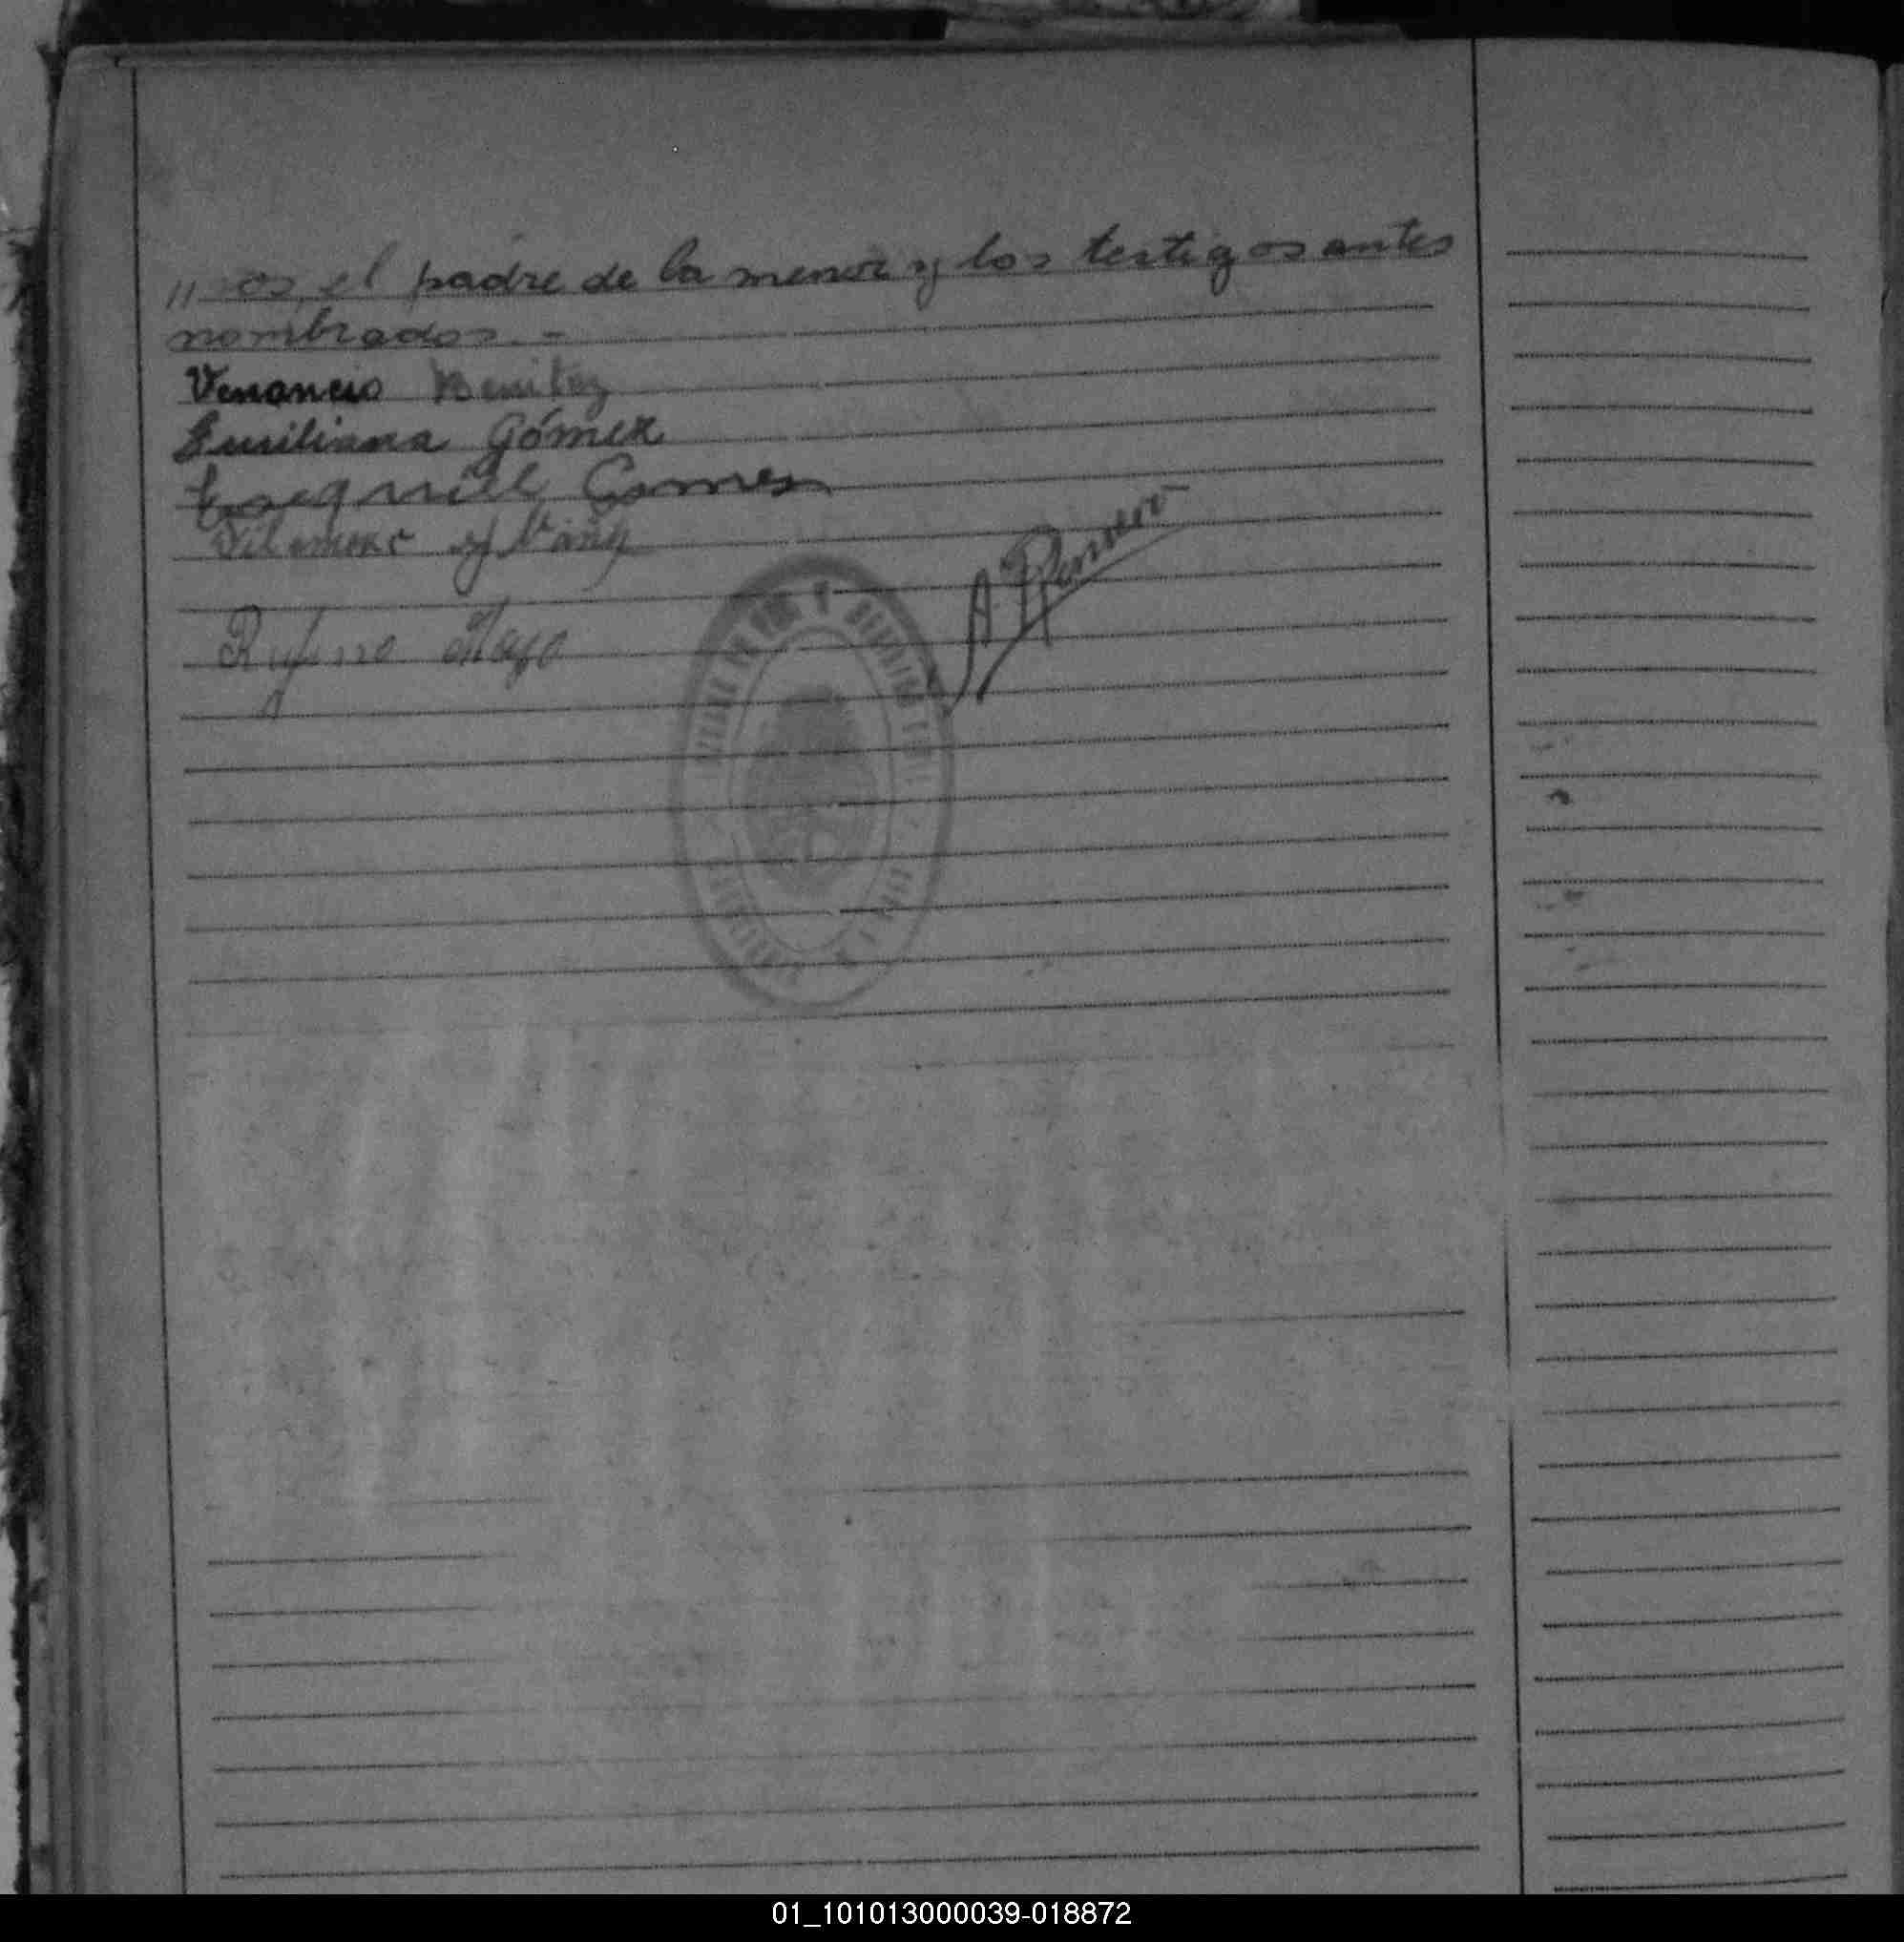 "ros, el padre de la menor y los testigos antes
nombrados. -
Venancio Benitez
Emiliana Gómez
Esequiell Gomes
Rufino Mayo
JUZGADO DE PAZ Y
01_101013000039-018872